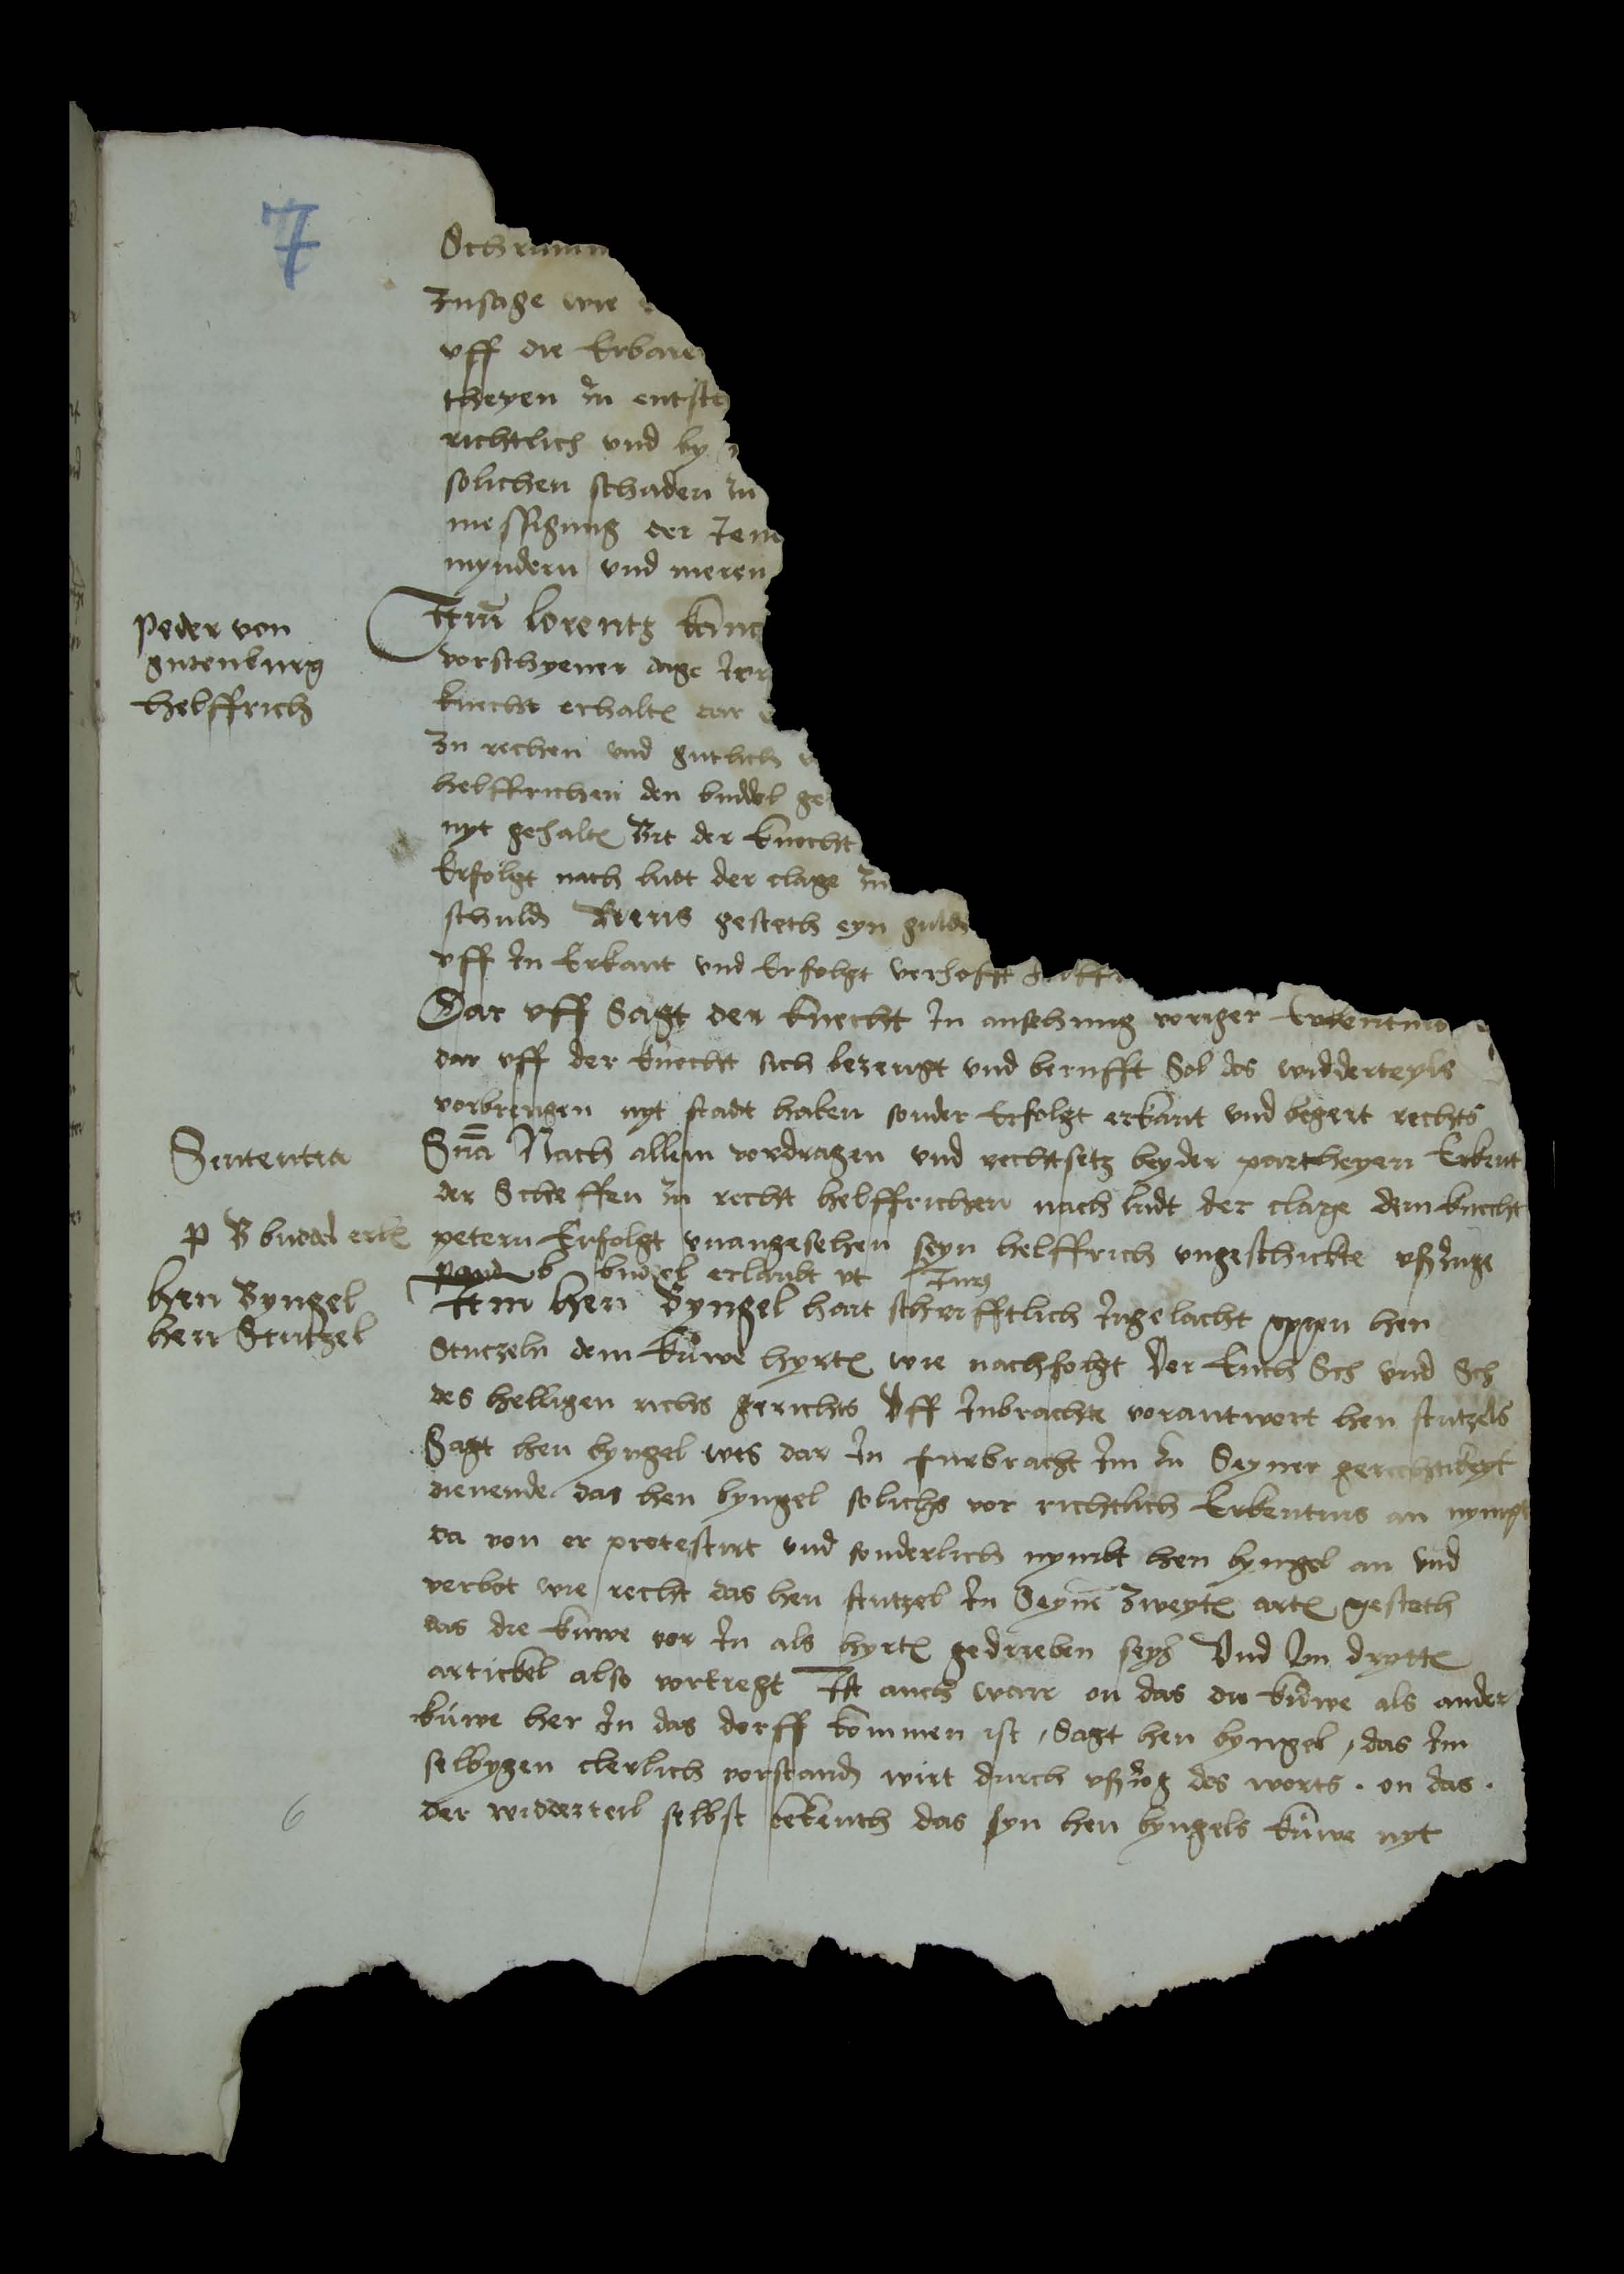 7
Schrumm
zusage wie
vff die Erbare
theyen in entste
richtlich vnd by
solichen schaden zu
messigung der
myndern vnd meren
Peder von
gutenburg
helffrich
Item lorentz
vorschyener dage
knecht erhalten dar
zu rechen vnd gutlich
helffrichen den buddel ge
nyt gehalten Bit der knecht
Erfolgt nach ludt der clage zu
schuld gesteth eyn guld
vff in Erkant vnd Erfolgt verhofft
Dar vff Sagt der knecht in ansehung voriger Erkentnis
dar vff der knecht sich bezeugt vnd berufft Sol des widderteyls
vorbrengen nyt stadt haben sonder Erfolgt erkant vnd begert rechts
Sententia
Sna Nach allem vordragen vnd rechtsetz beyder partheyen Erkent
der Scheffen zu recht helffrichen nach ludt der clage dem knecht
p B buddel erlt
petern Erfolgt vnangesehen seyn helffrich vngeschickte vßzuge
buddel erlaubt vt
hen Byngel
hen Stutzel
Item hen Byngel hatt schrifftlich ingelacht gegen hen
Stutzeln dem kuwe hyrten wie nachfolgt Der Euch Sch vnd Sch
des helligen richs gerichts Vff inbrachte vorantwort hen stutzels
Sagt hen byngel wes dar in furbracht im zu Seyner gerechtikeyt
dienende das hen byngel solichs vor richtlich Erkentnis an nympt
da von er protestirt vnd sonderlich nymbt hen byngel an vnd
verbot wie recht das hen stutzel in Seynem zweyten arten gesteth
das die kuwe vor in als hyrten gedrieben sey Vnd im drytten
artickel also vortregt Ist auch warr on das die kuwe als ander
kuwe her in das dorff kommen ist, Sagt hen byngel, das im
selbygen clerlich vorstand wirt durch vßzog des worts. on das.
der widderteil selbst bekenth das syn hen byngels kuwe nyt
6